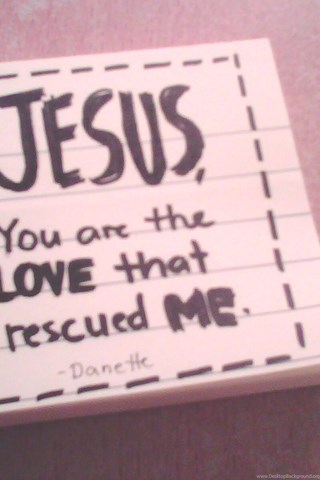 JESUS,
You are the
LOVE that
rescued ME.
-Danette